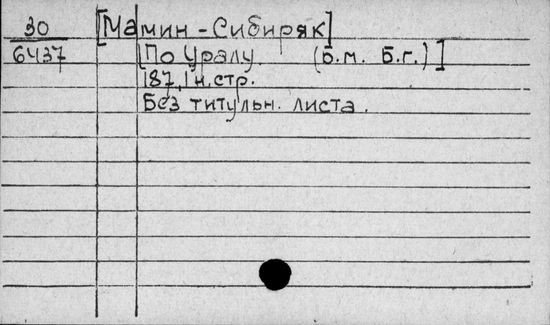 30 [Мамин-Сибиряк]
6437 [По Уралу. (Б.м. Б.г.)]
187,1 н.стр.
Без титульн. листа.